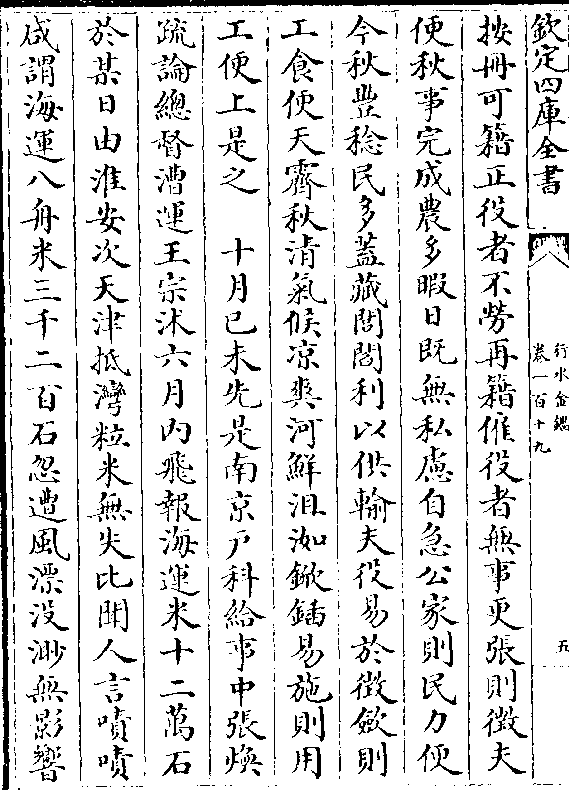 欽定四庫全書
行水金鑑
卷一百十九
五
按冊可籍正役者不勞再籍僱役者無事更張則徵夫
便秋事完成農多暇日既無私慮自急公家則民力便
今秋豐稔民多蓋藏閭閻利以供輸夫役易於徵斂則
工食便天霽秋清氣候凉爽河鮮沮洳鍬鍤易施則用
工便上是之　十月己未先是南京戶科給事中張煥
疏論總督漕運王宗沐六月內飛報海運米十二萬石
於某日由淮安次天津抵灣粒米無失比聞人言嘖嘖
咸謂海運八舟米三千二百石忽遭風漂没渺無影響